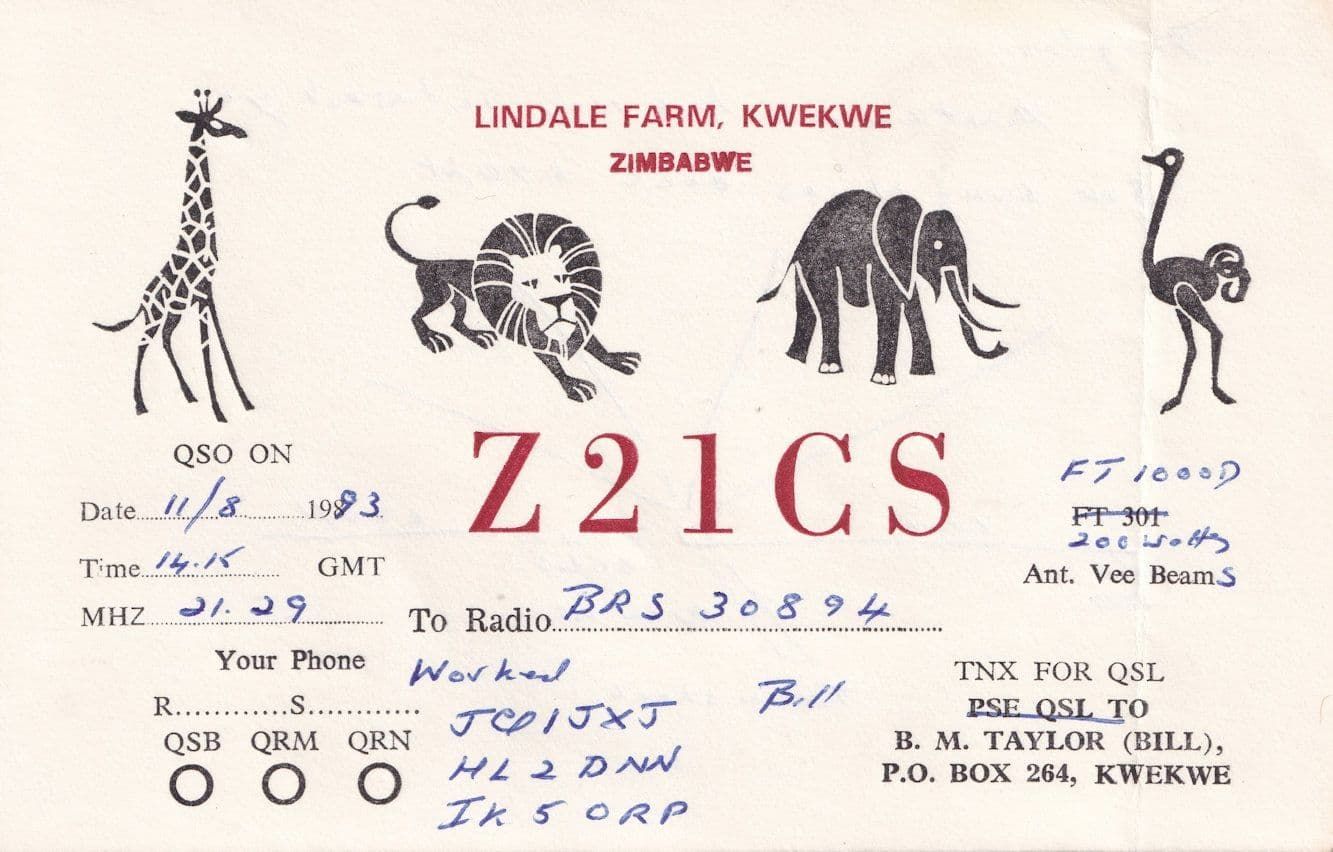 LINDALE FARM, KWEKWE
ZIMBABWE
QSO ON
Z21CS
Date 11/8 1993
Time 14.15 GMT
MHZ 21.29
FT 1000D
FT 301
200 Watts
Ant. Vee Beams
To Radio BRS 30894
Your Phone
R............S............
QSB QRM QRN
Worked
HL2DNN
IK5ORP
Bill
TNX FOR QSL
PSE QSL TO
B. M. TAYLOR (BILL),
P.O. BOX 264, KWEKWE